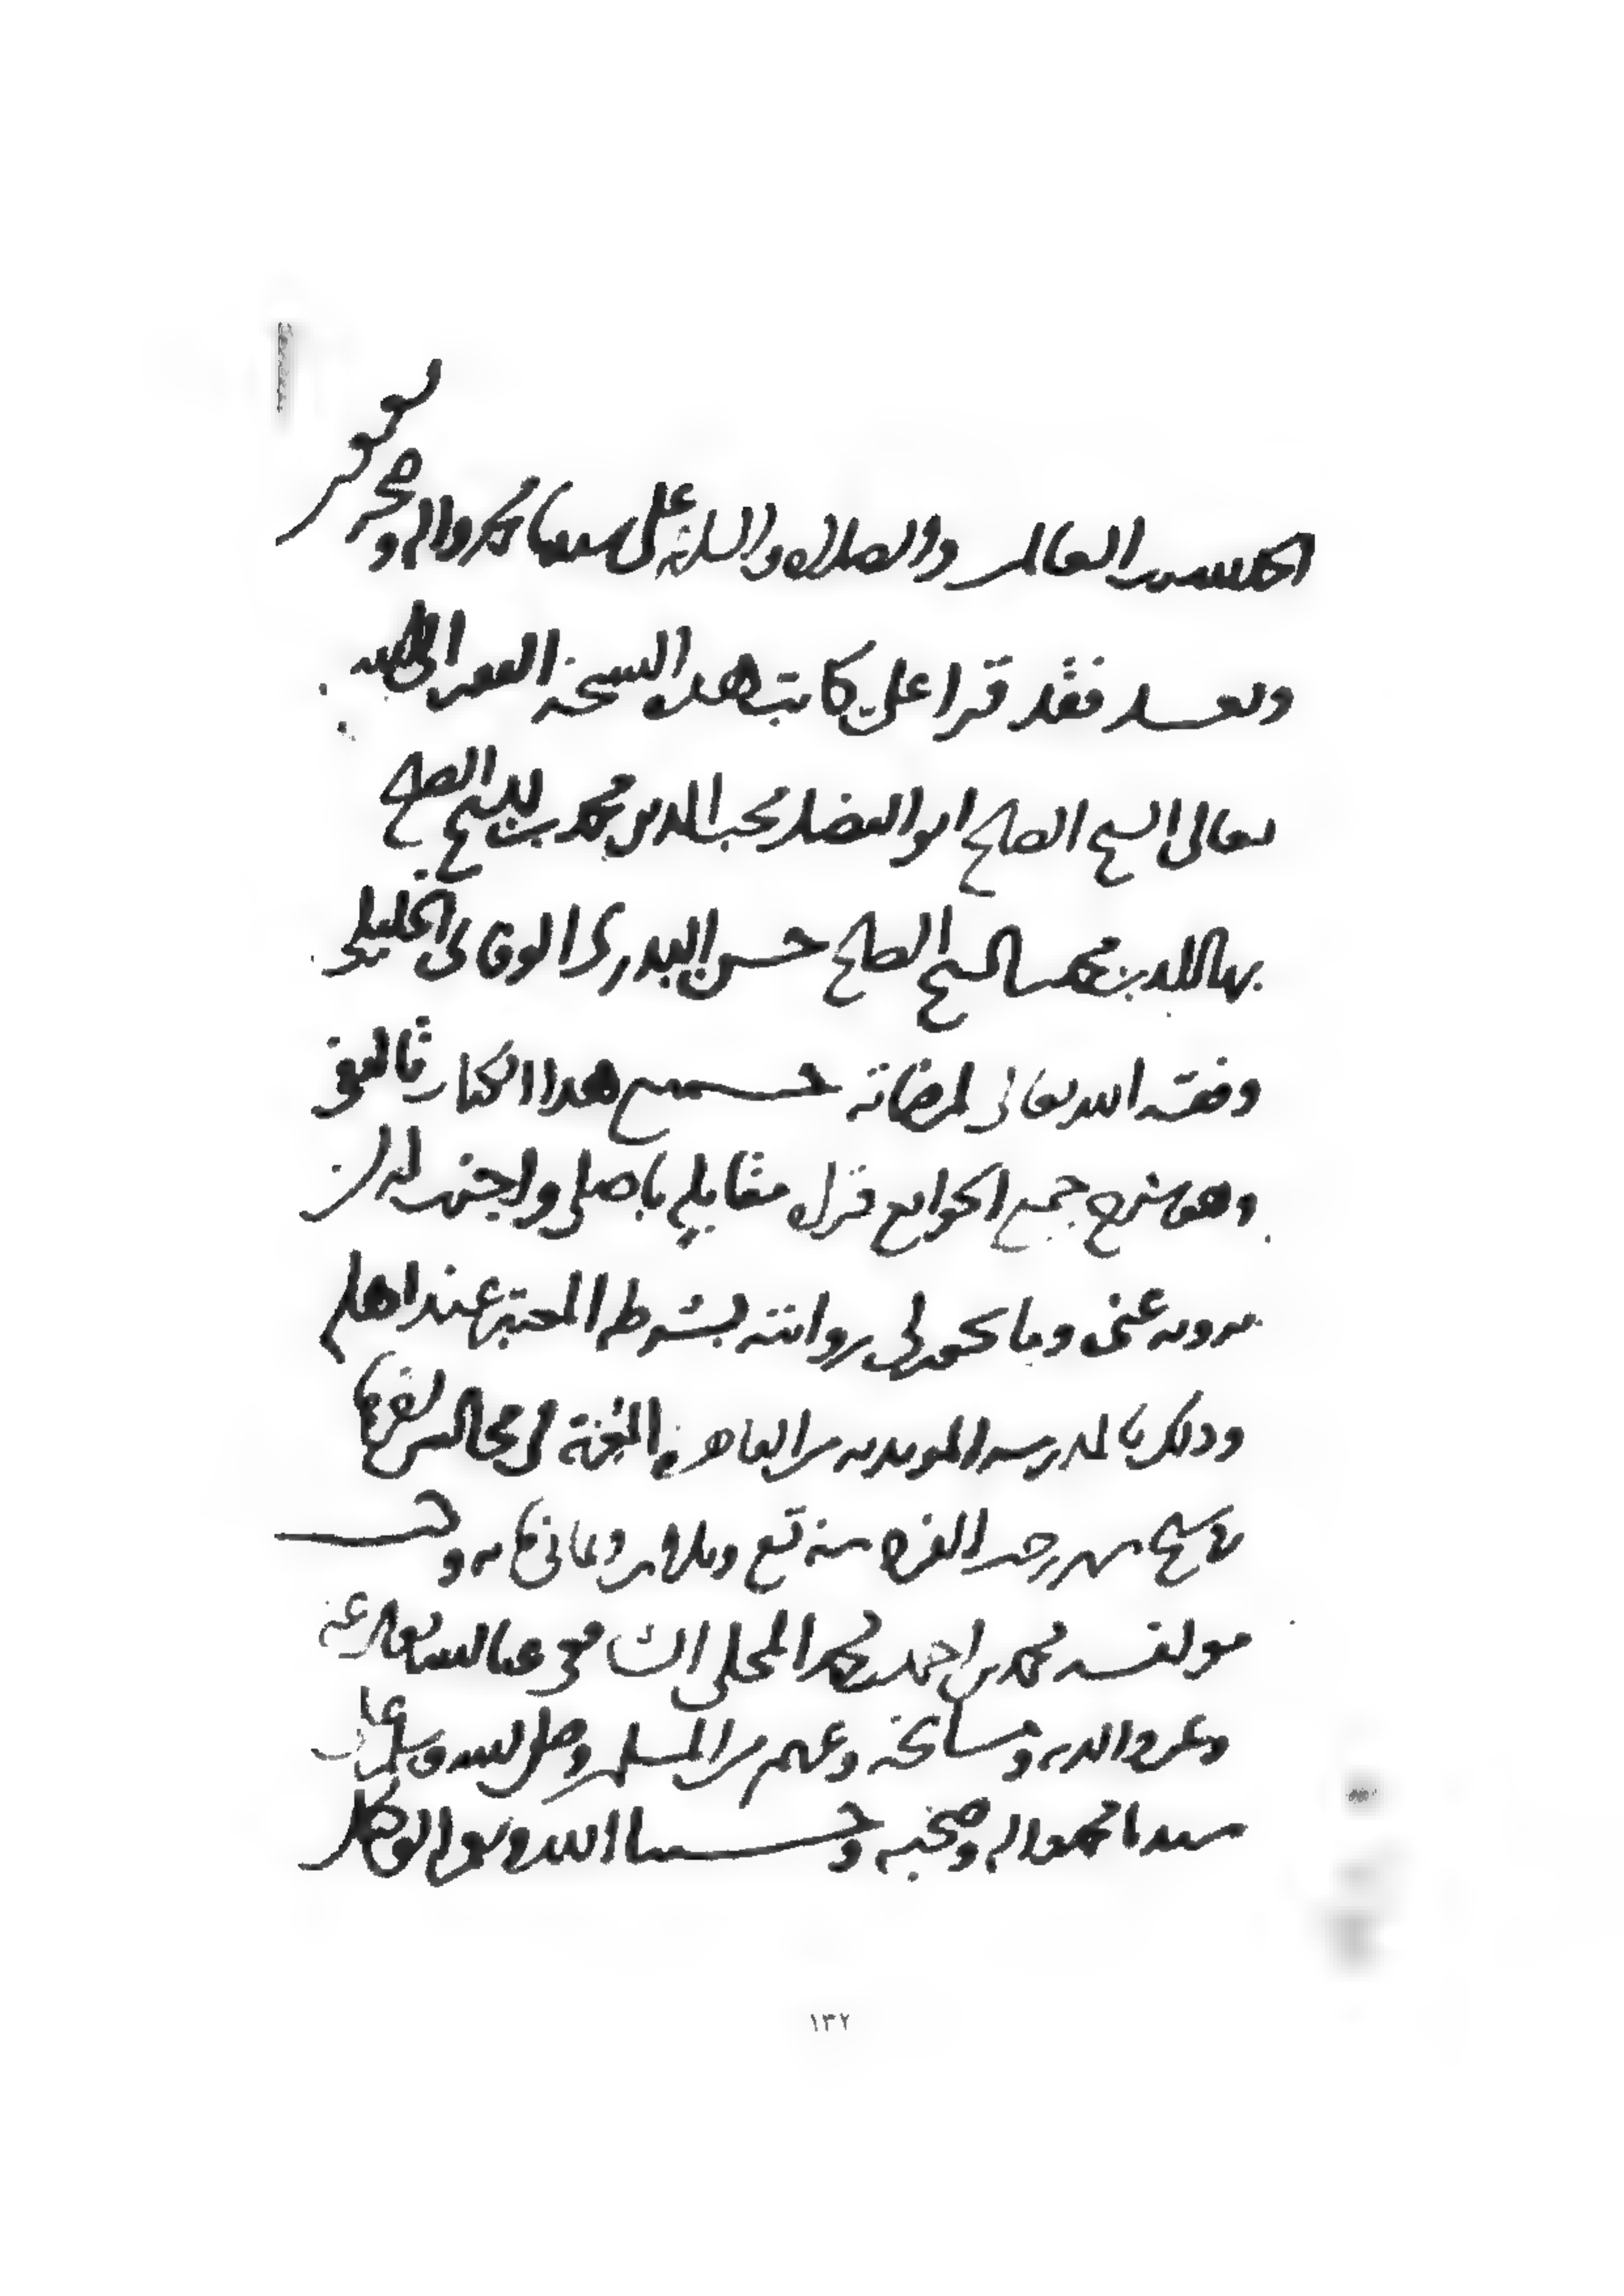 الحمد لله رب العالمين والصلاة والسلام على سيدنا محمد واله وصحبه
وبعد فقد قرا علي كاتب هذه النسخة الفقير الى الله
تعالى الشيخ الصالح ابو الفضل محب الدين محمد بن الشيخ الصالح
بهاء الدين محمد بن الشيخ الصالح حسن البدري الوفائي الخليلي
وفقه الله تعالى لمرضاته جميع هذا الكتاب تاليفي
وهو شرح جمع الجوامع قراه مقابله باصلي واجزت له ان
يرويه عني وما يجوز لي روايته بشرطه المعتبر عند اهله
وذلك بالمدرسة المويدية من القاهرة في مجالس اخرها
تاسع شهر رجب الفرد سنة تسع وثلاثين وثمانمائة وكتب
مولفه محمد بن احمد بن محمد المحلي الشافعي عفا الله تعالى عنه
وعن والديه ومشايخه وعن المسلمين وصلى الله وسلم على
سيدنا محمد واله وصحبه وحسبنا الله ونعم الوكيل
١٣٢